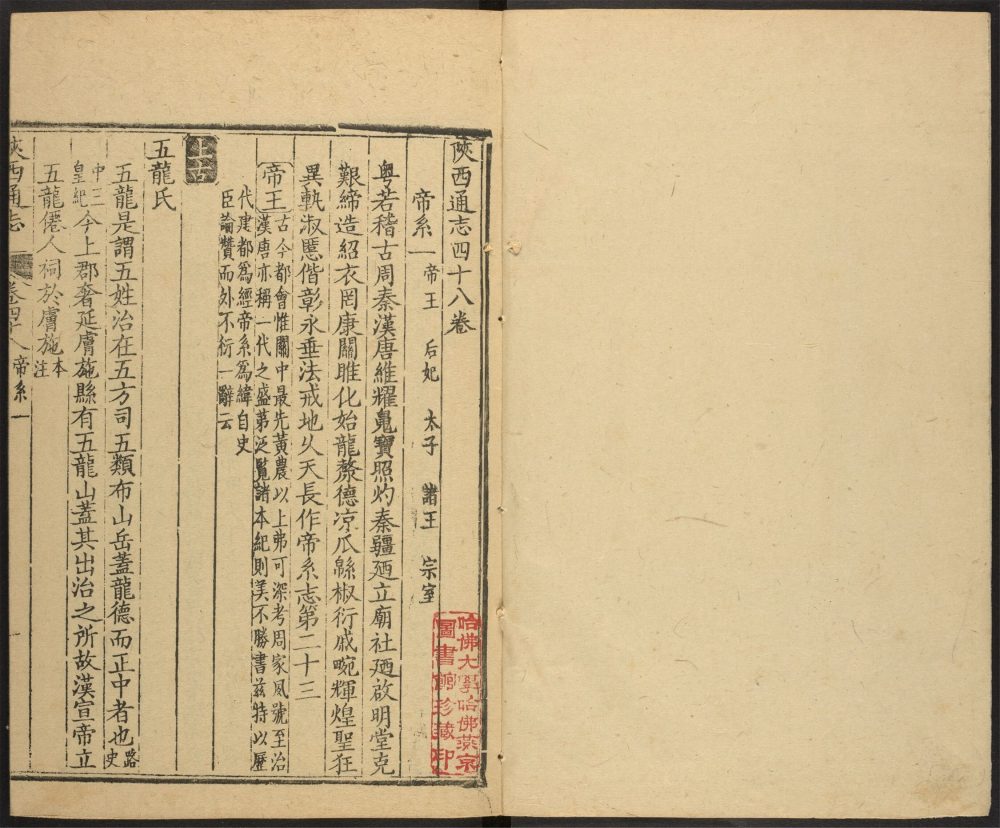 陝西通志四十八卷
帝系一 帝王 后妃 太子 諸王 宗室
粤若稽古周秦漢唐維耀鬼寶照灼秦疆廼立廟社廼啟明堂克
艱締造紹衣罔康關雎化始龍漦德凉瓜緜椒衍戚畹輝煌聖狂
異軌淑慝偕彰永垂法戒地乆天長作帝系志第二十三
帝王 古今都會惟關中最先黃農以上弗可深考周家風號至治
漢唐亦稱一代之盛第泛覽諸本紀則美不勝書兹特以歷
代建都爲經帝系爲緯自史
臣論贊而外不衍一辭云
上古
五龍氏
五龍是謂五姓治在五方司五類布山岳蓋龍德而正中者也 路史
中三皇紀 今上郡奢延膚施縣有五龍山蓋其出治之所故漢宣帝立
五龍僊人祠於膚施 本注
陝西通志 卷四十八 帝系一
哈佛大學哈佛燕京
圖書館珍藏印